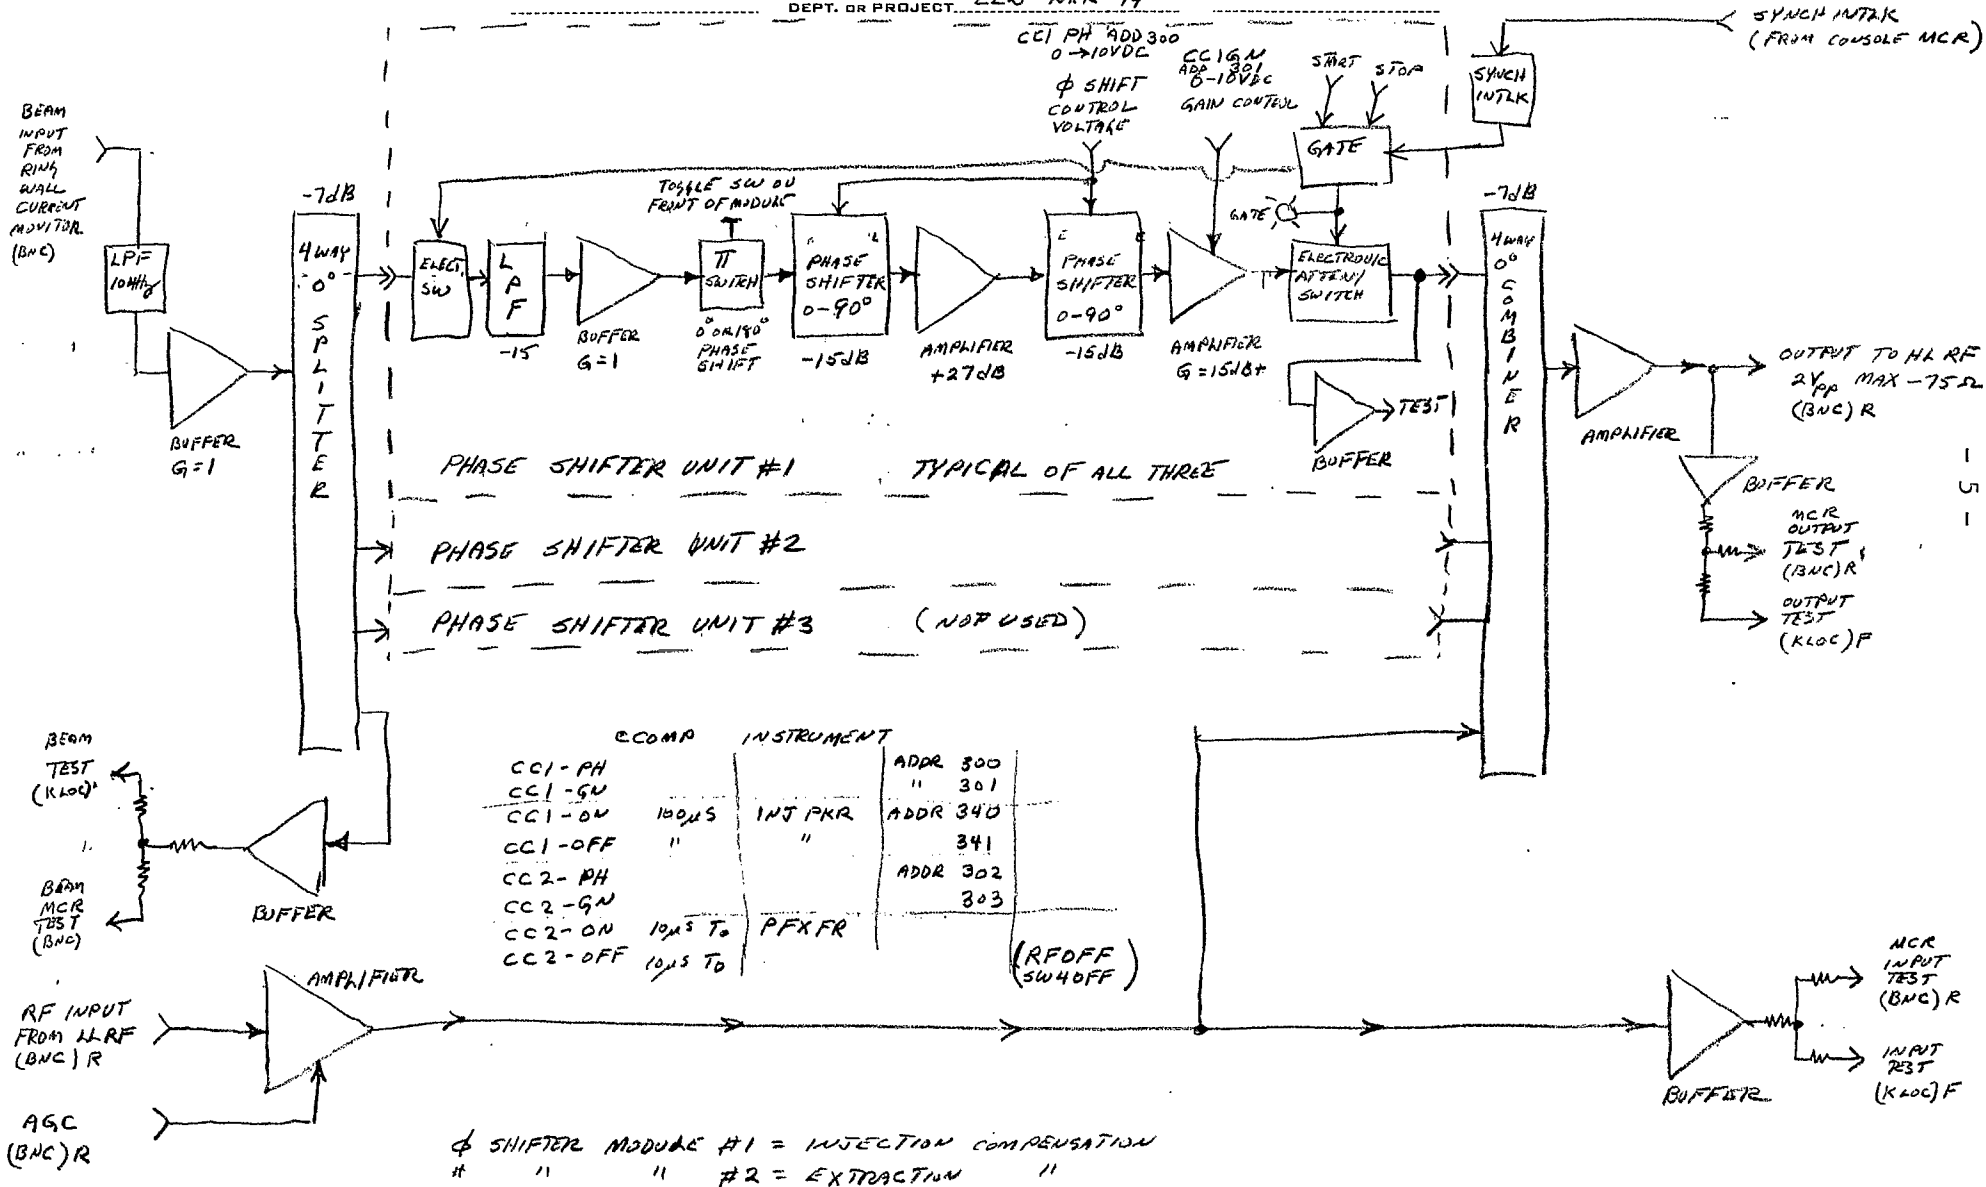 DEPT. OR PROJECT
SYNCH INTLK
(FROM CONSOLE MCR)
CC1 PH ADD 300
0→10VDC
φ SHIFT
CONTROL
VOLTAGE
CC1GN
ADD 301
0-10VDC
GAIN CONTROL
START
STOP
SYNCH
INTLK
GATE
BEAM
INPUT
FROM
RING
WALL
CURRENT
MONITOR
(BNC)
LPF
BUFFER
G=1
-7dB
4 WAY
0°
SPLITTER
ELECT.
SW
LPF
-15
BUFFER
G=1
TOGGLE SW ON
FRONT OF MODULE
π
SWITCH
0° OR 180°
PHASE
SHIFT
PHASE
SHIFTER
0-90°
-15dB
AMPLIFIER
+27dB
PHASE
SHIFTER
0-90°
-15dB
AMPLIFIER
G=15dB+
GATE
ELECTRONIC
ATTEN/
SWITCH
TEST
BUFFER
-7dB
4 WAY
0°
COMBINER
AMPLIFIER
OUTPUT TO HL RF
2Vpp MAX -75Ω
(BNC) R
BUFFER
MCR
OUTPUT
TEST
(BNC) R
OUTPUT
TEST
(KLOC) F
- 5 -
PHASE SHIFTER UNIT #1 TYPICAL OF ALL THREE
PHASE SHIFTER UNIT #2
PHASE SHIFTER UNIT #3 (NOT USED)
BEAM
TEST
(KLOC)
BEAM
MCR
TEST
(BNC)
BUFFER
CCOMP INSTRUMENT
CC1-PH ADDR 300
CC1-GN " 301
CC1-ON 100μS INJ PKR ADDR 340
CC1-OFF " " 341
CC2-PH ADDR 302
CC2-GN 303
CC2-ON 10μS T0 PFXFR
CC2-OFF 10μS T0
(RFOFF
SW4OFF)
AMPLIFIER
RF INPUT
FROM LLRF
(BNC) R
AGC
(BNC) R
BUFFER
MCR
INPUT
TEST
(BNC) R
INPUT
TEST
(KLOC) F
φ SHIFTER MODULE #1 = INJECTION COMPENSATION
" " " #2 = EXTRACTION "